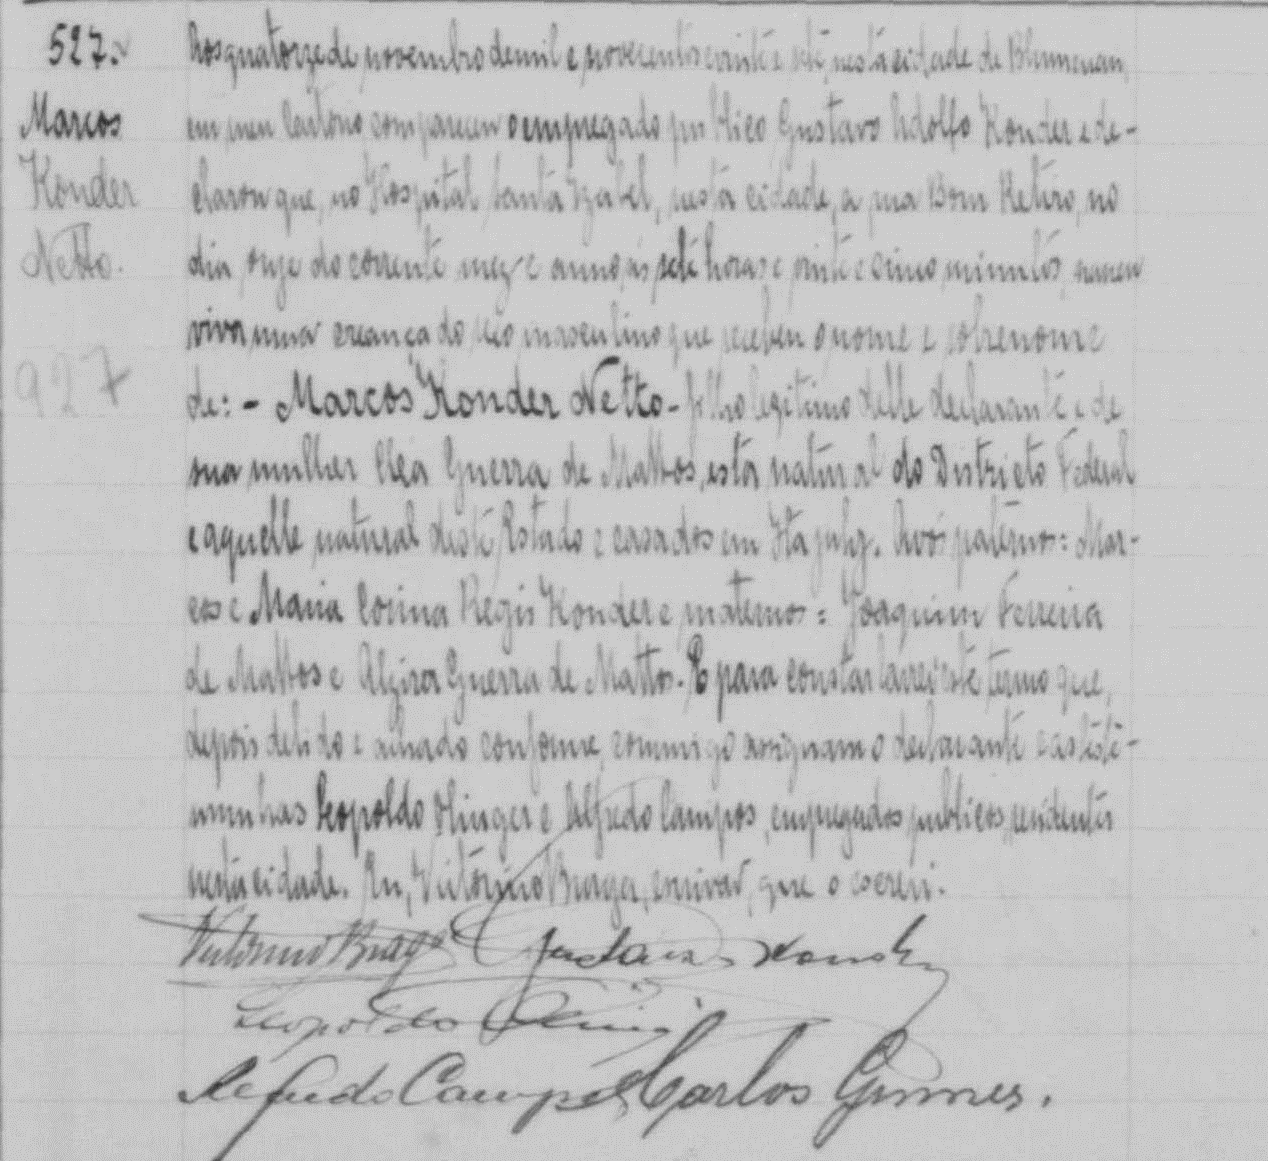 527.
Marcos
Konder
Netto.
927
Aos quatorze de novembro de mil e novecentos e vinte e sete, nesta cidade de Blumenau,
em meu cartorio compareceu o empregado publico Gustavo Adolfo Konder e de-
clarou que, no Hospital Santa Izabel, nesta cidade, a rua Bom Retiro, no
dia onze do corrente mez e anno, ás sete horas e vinte e cinco minutos, nasceu
viva uma creança do sexo masculino que recebeu o nome e sobrenome
de: - Marcos Konder Netto - filho legitimo delle declarante e de
sua mulher Cléa Guerra de Mattos, esta natural do Districto Federal
e aquelle natural deste Estado e casados em Itajahy. Avós paternos: Mar-
cos e Maria Corina Regis Konder e maternos: Joaquim Ferreira
de Mattos e Alzira Guerra de Mattos. E para constar lavrei este termo que,
depois de lido e achado conforme, commigo assignam o declarante e as teste-
munhas Leopoldo Olinger e Alfredo Campos, empregados publicos, residentes
nesta cidade. Eu, Victorino Braga, escrivão, que o escrevi.
Victorino Braga Gustavo Konder
Leopoldo
Alfredo Campos Carlos Gomes.